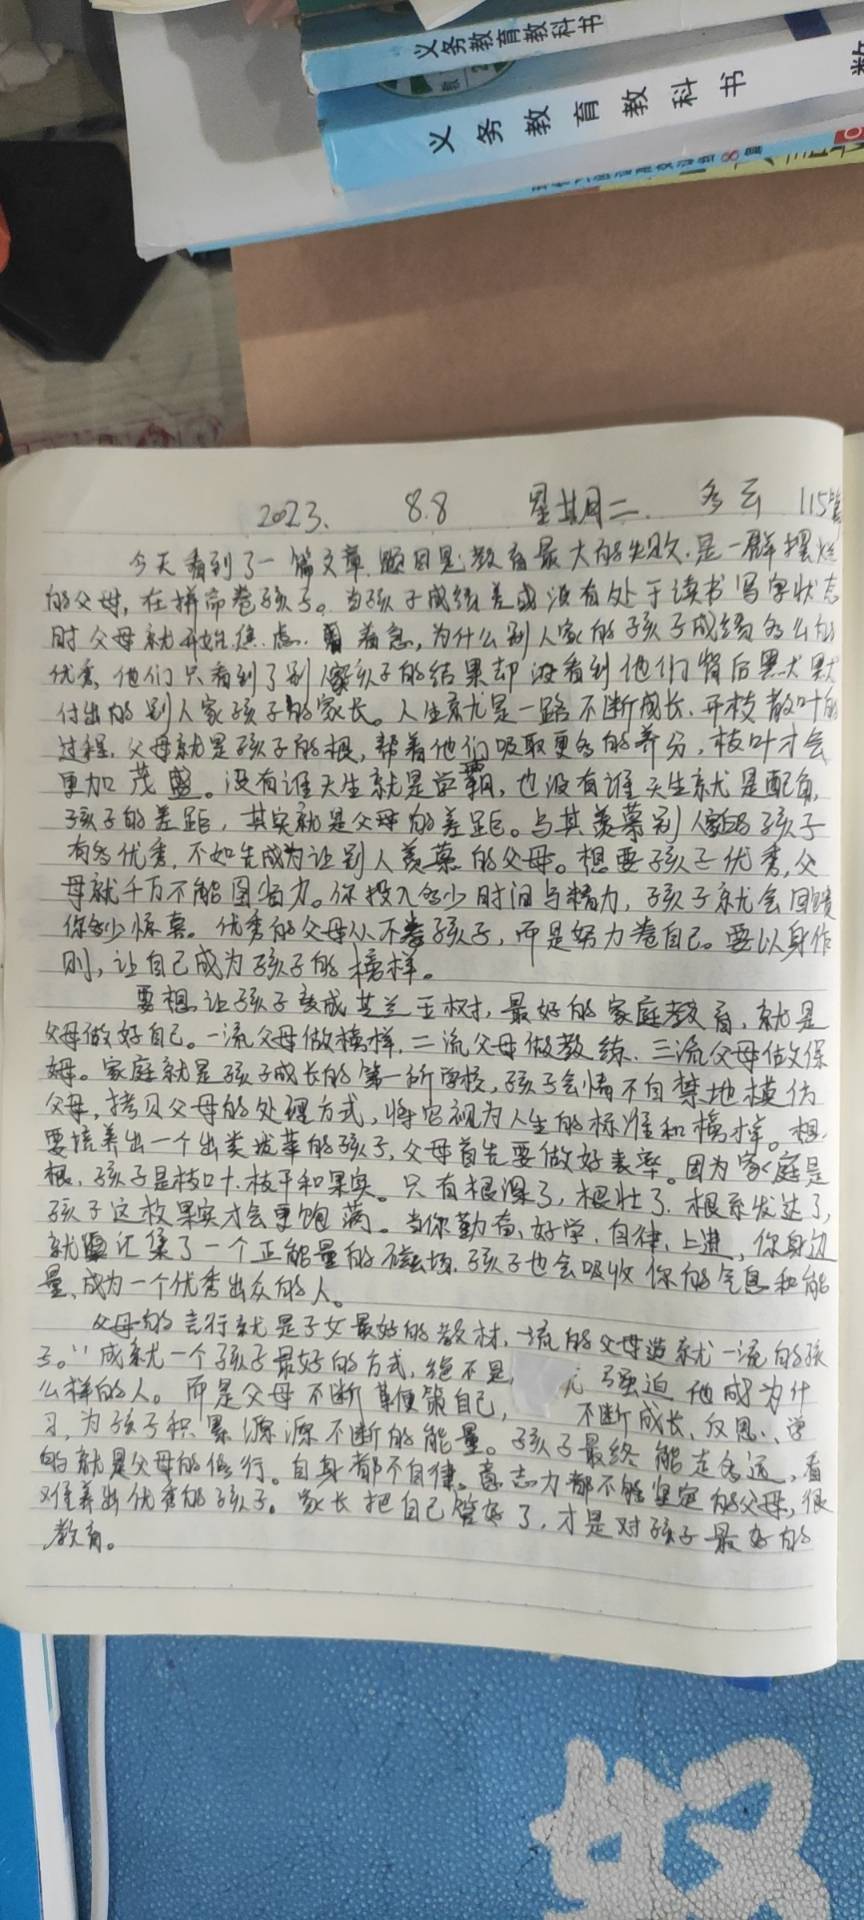 义务教育教科书
义务教育教科书
2023. 8.8 星期二. 多云 115篇
今天看到了一篇文章,题目是教育最大的失败,是一群摆烂
的父母,在拼命卷孩子。当孩子成绩差或没有处于读书写字状态
时父母就开始焦虑.着急,为什么别人家的孩子成绩多么的
优秀,他们只看到了别人家孩子的结果却没看到他们背后默默
付出的别人家孩子的家长。人生就是一路不断成长,开枝散叶的
过程,父母就是孩子的根,帮着他们吸取更多的养分,枝叶才会
更加茂盛。没有谁天生就是学霸,也没有谁天生就是配角,
孩子的差距,其实就是父母的差距。与其羡慕别人家的孩子
有多优秀,不如先成为让别人羡慕的父母。想要孩子优秀,父
母就千万不能图省力。你投入多少时间与精力,孩子就会回馈
你多少惊喜。优秀的父母从不卷孩子,而是努力卷自己。要以身作
则,让自己成为孩子的榜样。
要想让孩子变成芝兰玉树,最好的家庭教育,就是
父母做好自己。一流父母做榜样,二流父母做教练,三流父母做保
姆。家庭就是孩子成长的第一所学校,孩子会情不自禁地模仿
父母,拷贝父母的处理方式,将它视为人生的标准和榜样。想
要培养出一个出类拔萃的孩子,父母首先要做好表率。因为家庭是
根,孩子是枝叶.枝干和果实。只有根深了,根壮了,根系发达了,
孩子这枚果实才会更饱满。当你勤奋、好学、自律、上进,你身边
就汇集了一个正能量的磁场,孩子也会吸收你的气息和能
量,成为一个优秀出众的人。
父母的言行就是子女最好的教材,一流的父母造就一流的孩
子。成就一个孩子最好的方式,绝不是 强迫他成为什
么样的人。而是父母不断鞭策自己, 不断成长、反思、学
习,为孩子积累源源不断的能量。孩子最终能走多远,看
的就是父母的修行。自身都不自律、意志力都不够坚定的父母,很
难养出优秀的孩子。家长把自己管好了,才是对孩子最好的
教育。